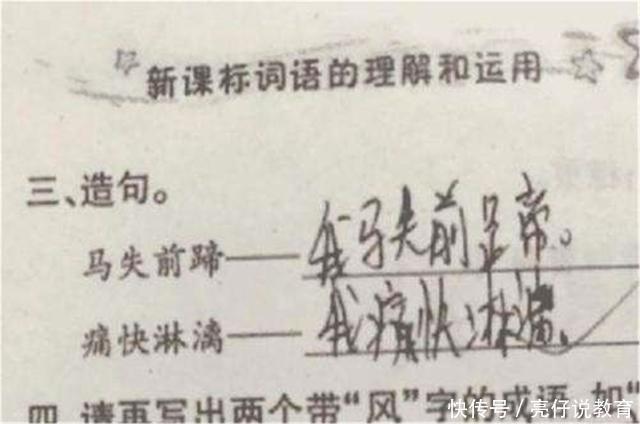 新课标词语的理解和运用
三、造句。
马失前蹄——我马失前蹄。
痛快淋漓——我痛快淋漓。
四、请再写出两个带“风”字的成语,如“
快传号/亮仔说教育